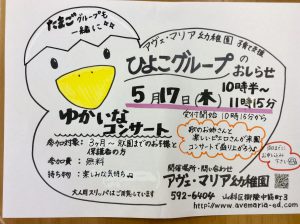 たまごグループも
一緒に
アヴェ・マリア幼稚園 子育て支援
ひよこグループのおしらせ
5月17日(木) 10時半〜11時15分
受付開始 10時15分から
ゆかいな
コンサート
歌のお姉さんと
楽しいピエロさんが来園
コンサートで盛り上がろう
参加対象: 3ヶ月〜就園までのお子様と
保護者の方
参加費: 無料
持ち物: 楽しみな気持ち
大人用スリッパはご用意しています
開催場所・問い合わせ
アヴェ・マリア幼稚園
592-6404 山科区御陵中筋町3
http://www.avemaria-ed.com/